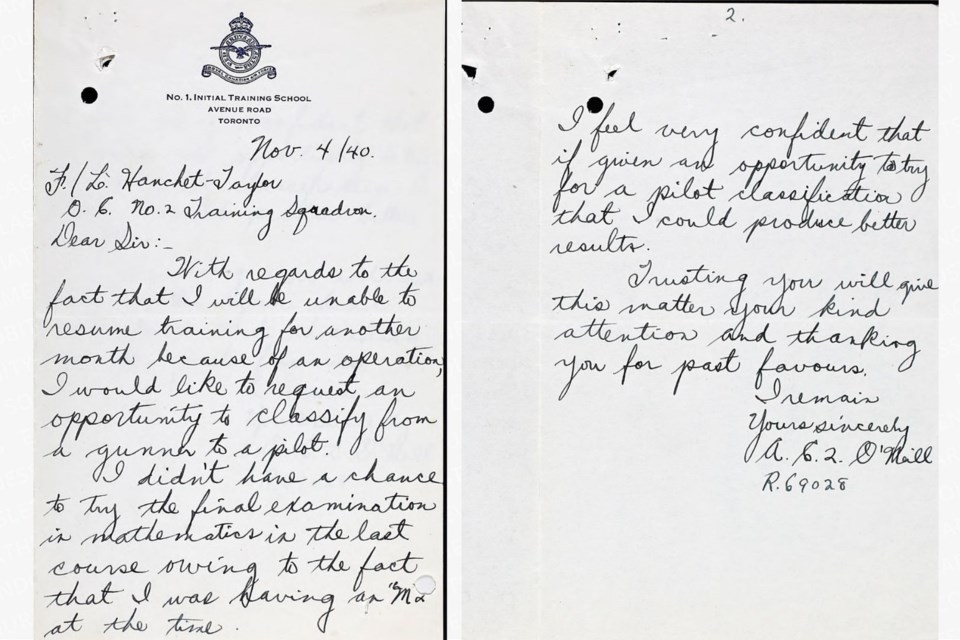 No. 1. INITIAL TRAINING SCHOOL
AVENUE ROAD
TORONTO
Nov. 4/40.
F./L. Hanchet-Taylor
O. C. No. 2 Training Squadron.
Dear Sir:-
With regards to the
fact that I will be unable to
resume training for another
month because of an operation,
I would like to request an
opportunity to classify from
a gunner to a pilot.
I didn't have a chance
to try the final examination
in mathematics in the last
course owing to the fact
that I was having an "M2
at the time.
2.
I feel very confident that
if given an opportunity to try
for a pilot classification
that I could produce better
results.
Trusting you will give
this matter your kind
attention and thanking
you for past favours.
I remain
Yours sincerely
A. C. 2. O'Neill
R.69028